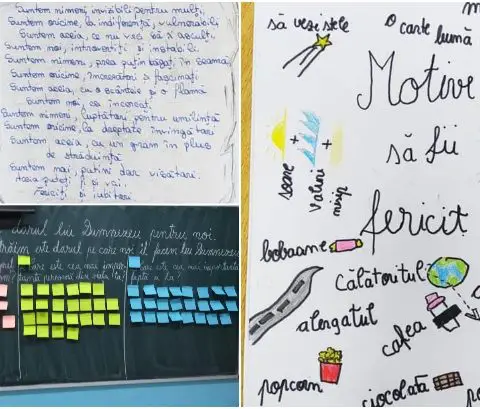 Suntem nimeni, invizibili pentru mulți,
Suntem oricine, la indiferență, vulnerabili
Suntem aceia, ce nu vor să asculți
Suntem noi, introvertiți și instabili
Suntem nimeni, prea puțin băgați în seamă,
Suntem oricine, încrezători și fascinați
Suntem aceia, cu o scânteie și o flamă
Suntem noi, ce
Suntem nimeni, luptători pentru umilință
Suntem oricine, la dreptate învingători
Suntem aceia, cu un gram în plus
de străduință
Suntem noi, puțini dar visători.
Acia puteți fi și voi,
Fericiți și iubitori.
darul lui Dumnezeu pentru noi.
trăim este darul pe care noi îl facem lui Dumnezeu
care este cea mai
care este cea mai importantă
persoană din viața ta?
faptă a ta?
să vezi stele
o carte bună
Motive
să fii
fericit
soare
+
valuri
+
nisip
bomboane
călătoritul
alergatul
cafea
popcorn
ciocolată